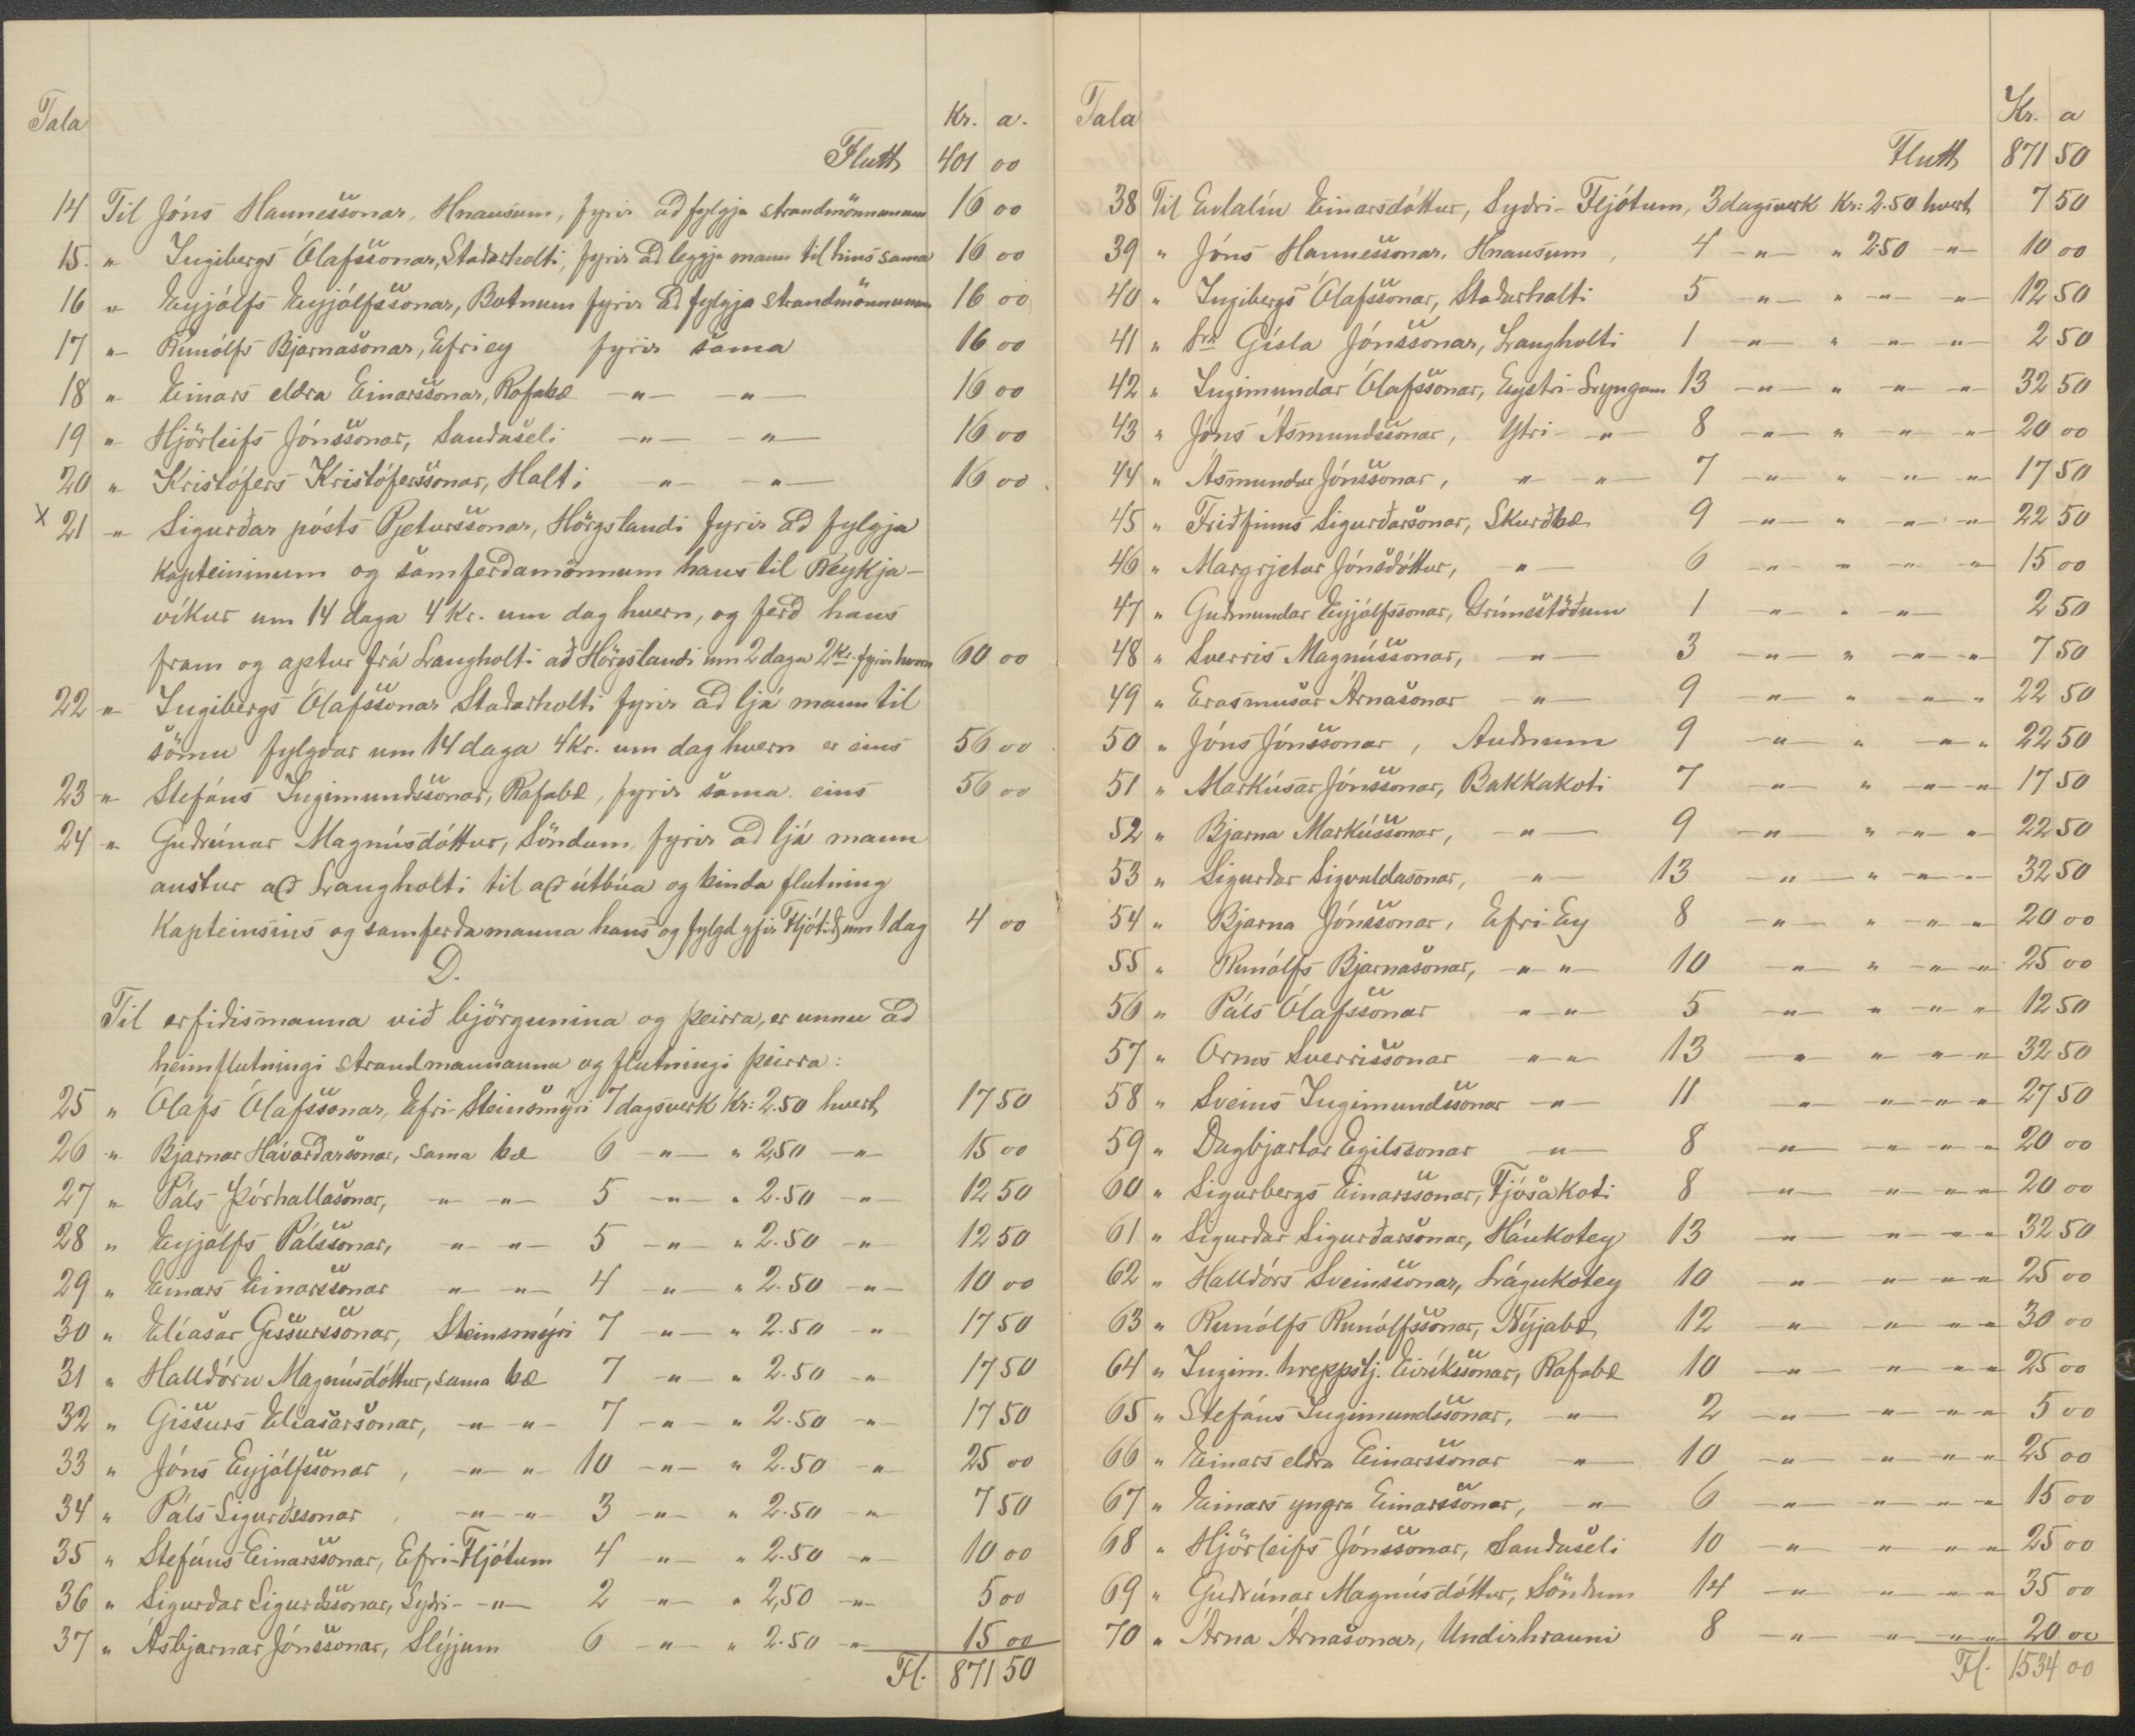 Tala Kr. a.
Flutt 401 00
14 Til Jóns Hannessonar, Hnausum, fyrir að fylgja strandmönnunum 16 00
15. " Ingibergs Ólafssonar, Staðarholti, fyrir að leggja mann til hins sama 16 00
16 " Eyjólfs Eyjólfssonar, Botnum fyrir að fylgja strandmönnunum 16 00
17 " Runólfs Bjarnasonar, Efriey fyrir sama 16 00
18 " Einars eldra Einarssonar, Rofabæ -"- -"- 16 00
19 " Hjörleifs Jónssonar, Sandaseli -"- -"- 16 00
20 " Kristófers Kristóferssonar, Holti -"- -"- 16 00
x 21 " Sigurðar pósts Pjeturssonar, Hörgslandi fyrir að fylgja
kapteininum og samferðamönnum hans til Reykja-
víkur um 14 daga 4 Kr. um dag hvern, og ferð hans
fram og aptur frá Langholti að Hörgslandi um 2 daga 2 Kr. fyrir hvern 60 00
22 " Ingibergs Ólafssonar Staðarholti fyrir að ljá mann til
sömu fylgdar um 14 daga 4 Kr. um dag hvern er eins 56 00
23 " Stefáns Ingimundssonar, Rofabæ, fyrir sama eins 56 00
24 " Guðrúnar Magnúsdóttur, Söndum, fyrir að ljá mann
austur að Langholti til að útbúa og binda flutning
kapteinsins og samferðamanna hans og fylgd yfir Fljótið, um 1 dag 4 00
D.
Til erfiðismanna við björgunina og þeirra, er unnu að
heimflutningi strandmannanna og flutningi þeirra:
25 " Ólafs Ólafssonar, Efri-Steinsmýri 7 dagsverk Kr: 2.50 hvert 17 50
26 " Bjarnar Hávarðarsonar, sama bæ 6 -"- " 2,50 -"- 15 00
27 " Páls Þórhallasonar, -"- -"- 5 -"- " 2.50 -"- 12 50
28 " Eyjólfs Pálssonar, -"- -"- 5 -"- " 2.50 -"- 12 50
29 " Einars Einarssonar -"- -"- 4 -"- " 2.50 -"- 10 00
30 " Elíasar Gissurssonar, Steinsmýri 7 -"- " 2.50 -"- 17 50
31 " Halldóru Magnúsdóttur, sama bæ 7 -"- " 2.50 -"- 17 50
32 " Gissurs Elíasarsonar, -"- -"- 7 -"- " 2.50 -"- 17 50
33 " Jóns Eyjólfssonar, -"- " 10 -"- " 2.50 -"- 25 00
34 " Páls Sigurðssonar, -"- -"- 3 -"- " 2.50 -"- 7 50
35 " Stefáns Einarssonar, Efri-Fljótum 4 -"- " 2.50 -"- 10 00
36 " Sigurðar Sigurðssonar, Syðri- -"- 2 -"- " 2,50 -"- 5 00
37 " Ásbjarnar Jónssonar, Slýjum 6 -"- " 2.50 -"- 15 00
Fl. 871 50
Tala Kr. a
Flutt 871 50
38 Til Evlalíu Einarsdóttur, Syðri-Fljótum, 3 dagsverk Kr: 2.50 hvert 7 50
39 " Jóns Hannessonar, Hnausum, 4 -"- " 2.50 -"- 10 00
40 " Ingibergs Ólafssonar, Staðarholti 5 -"- " -"- -"- 12 50
41 " Sra Gísla Jónssonar, Langholti 1 -"- " -"- -"- 2 50
42 " Ingimundar Ólafssonar, Eystri-Lyngum 13 -"- " -"- -"- 32 50
43 " Jóns Ásmundssonar, Ytri- -"- 8 -"- " -"- -"- 20 00
44 " Ásmundar Jónssonar, " -"- 7 -"- " -"- -"- 17 50
45 " Friðfinns Sigurðarsonar, Skurðbæ 9 -"- " -"- -"- 22 50
46 " Margrjetar Jónsdóttur, -"- 6 -"- " -"- -"- 15 00
47 " Guðmundar Eyjólfssonar, Grímsstöðum 1 -"- " -"- 2 50
48 " Sverris Magnússonar, -"- 3 -"- " -"- -"- 7 50
49 " Erasmusar Árnasonar -"- 9 -"- " -"- " 22 50
50 " Jóns Jónssonar, Auðnum 9 -"- " -"- " 22 50
51 " Markúsar Jónssonar, Bakkakoti 7 -"- " -"- -"- 17 50
52 " Bjarna Markússonar, -"- 9 -"- " -"- " 22 50
53 " Sigurðar Sigvaldasonar, -"- 13 -"- " -"- -"- 32 50
54 " Bjarna Jónssonar, Efri-Ey 8 -"- " -"- " 20 00
55 " Runólfs Bjarnasonar, -"- "- 10 -"- " -"- -"- 25 00
56 " Páls Ólafssonar -"- "- 5 -"- " -"- " 12 50
57 " Orms Sverrissonar -"- "- 13 -"- " -"- " 32 50
58 " Sveins Ingimundssonar -"- 11 -"- -"- -"- 27 50
59 " Dagbjartar Egilssonar -"- 8 -"- -"- -"- 20 00
60 " Sigurbergs Einarssonar, Fjósakoti 8 -"- -"- -"- 20 00
61 " Sigurðar Sigurðarsonar, Háukotey 13 -"- -"- -"- 32 50
62 " Halldórs Sveinssonar, Lágukotey 10 -"- -"- -"- 25 00
63 " Runólfs Runólfssonar, Nýjabæ 12 -"- -"- -"- 30 00
64 " Ingim. hreppstj. Eiríkssonar, Rofabæ 10 -"- -"- -"- 25 00
65 " Stefáns Ingimundssonar, -"- 2 -"- -"- -"- 5 00
66 " Einars eldra Einarssonar -"- 10 -"- -"- -"- 25 00
67 " Einars yngra Einarssonar, -"- 6 -"- -"- -"- 15 00
68 " Hjörleifs Jónssonar, Sandaseli 10 -"- -"- -"- 25 00
69 " Guðrúnar Magnúsdóttur, Söndum 14 -"- -"- -"- 35 00
70 " Árna Árnasonar, Undirhrauni 8 -"- -"- -"- 20 00
Fl. 1534 00